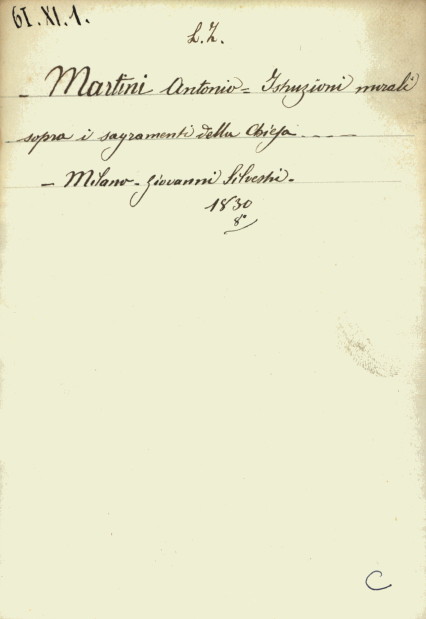 61. XI. 1.
L. Z.
- Martini Antonio = Istruzioni morali
sopra i sagramenti della Chiesa ....
- Milano - Giovanni Silvestri -
1830
8°
C